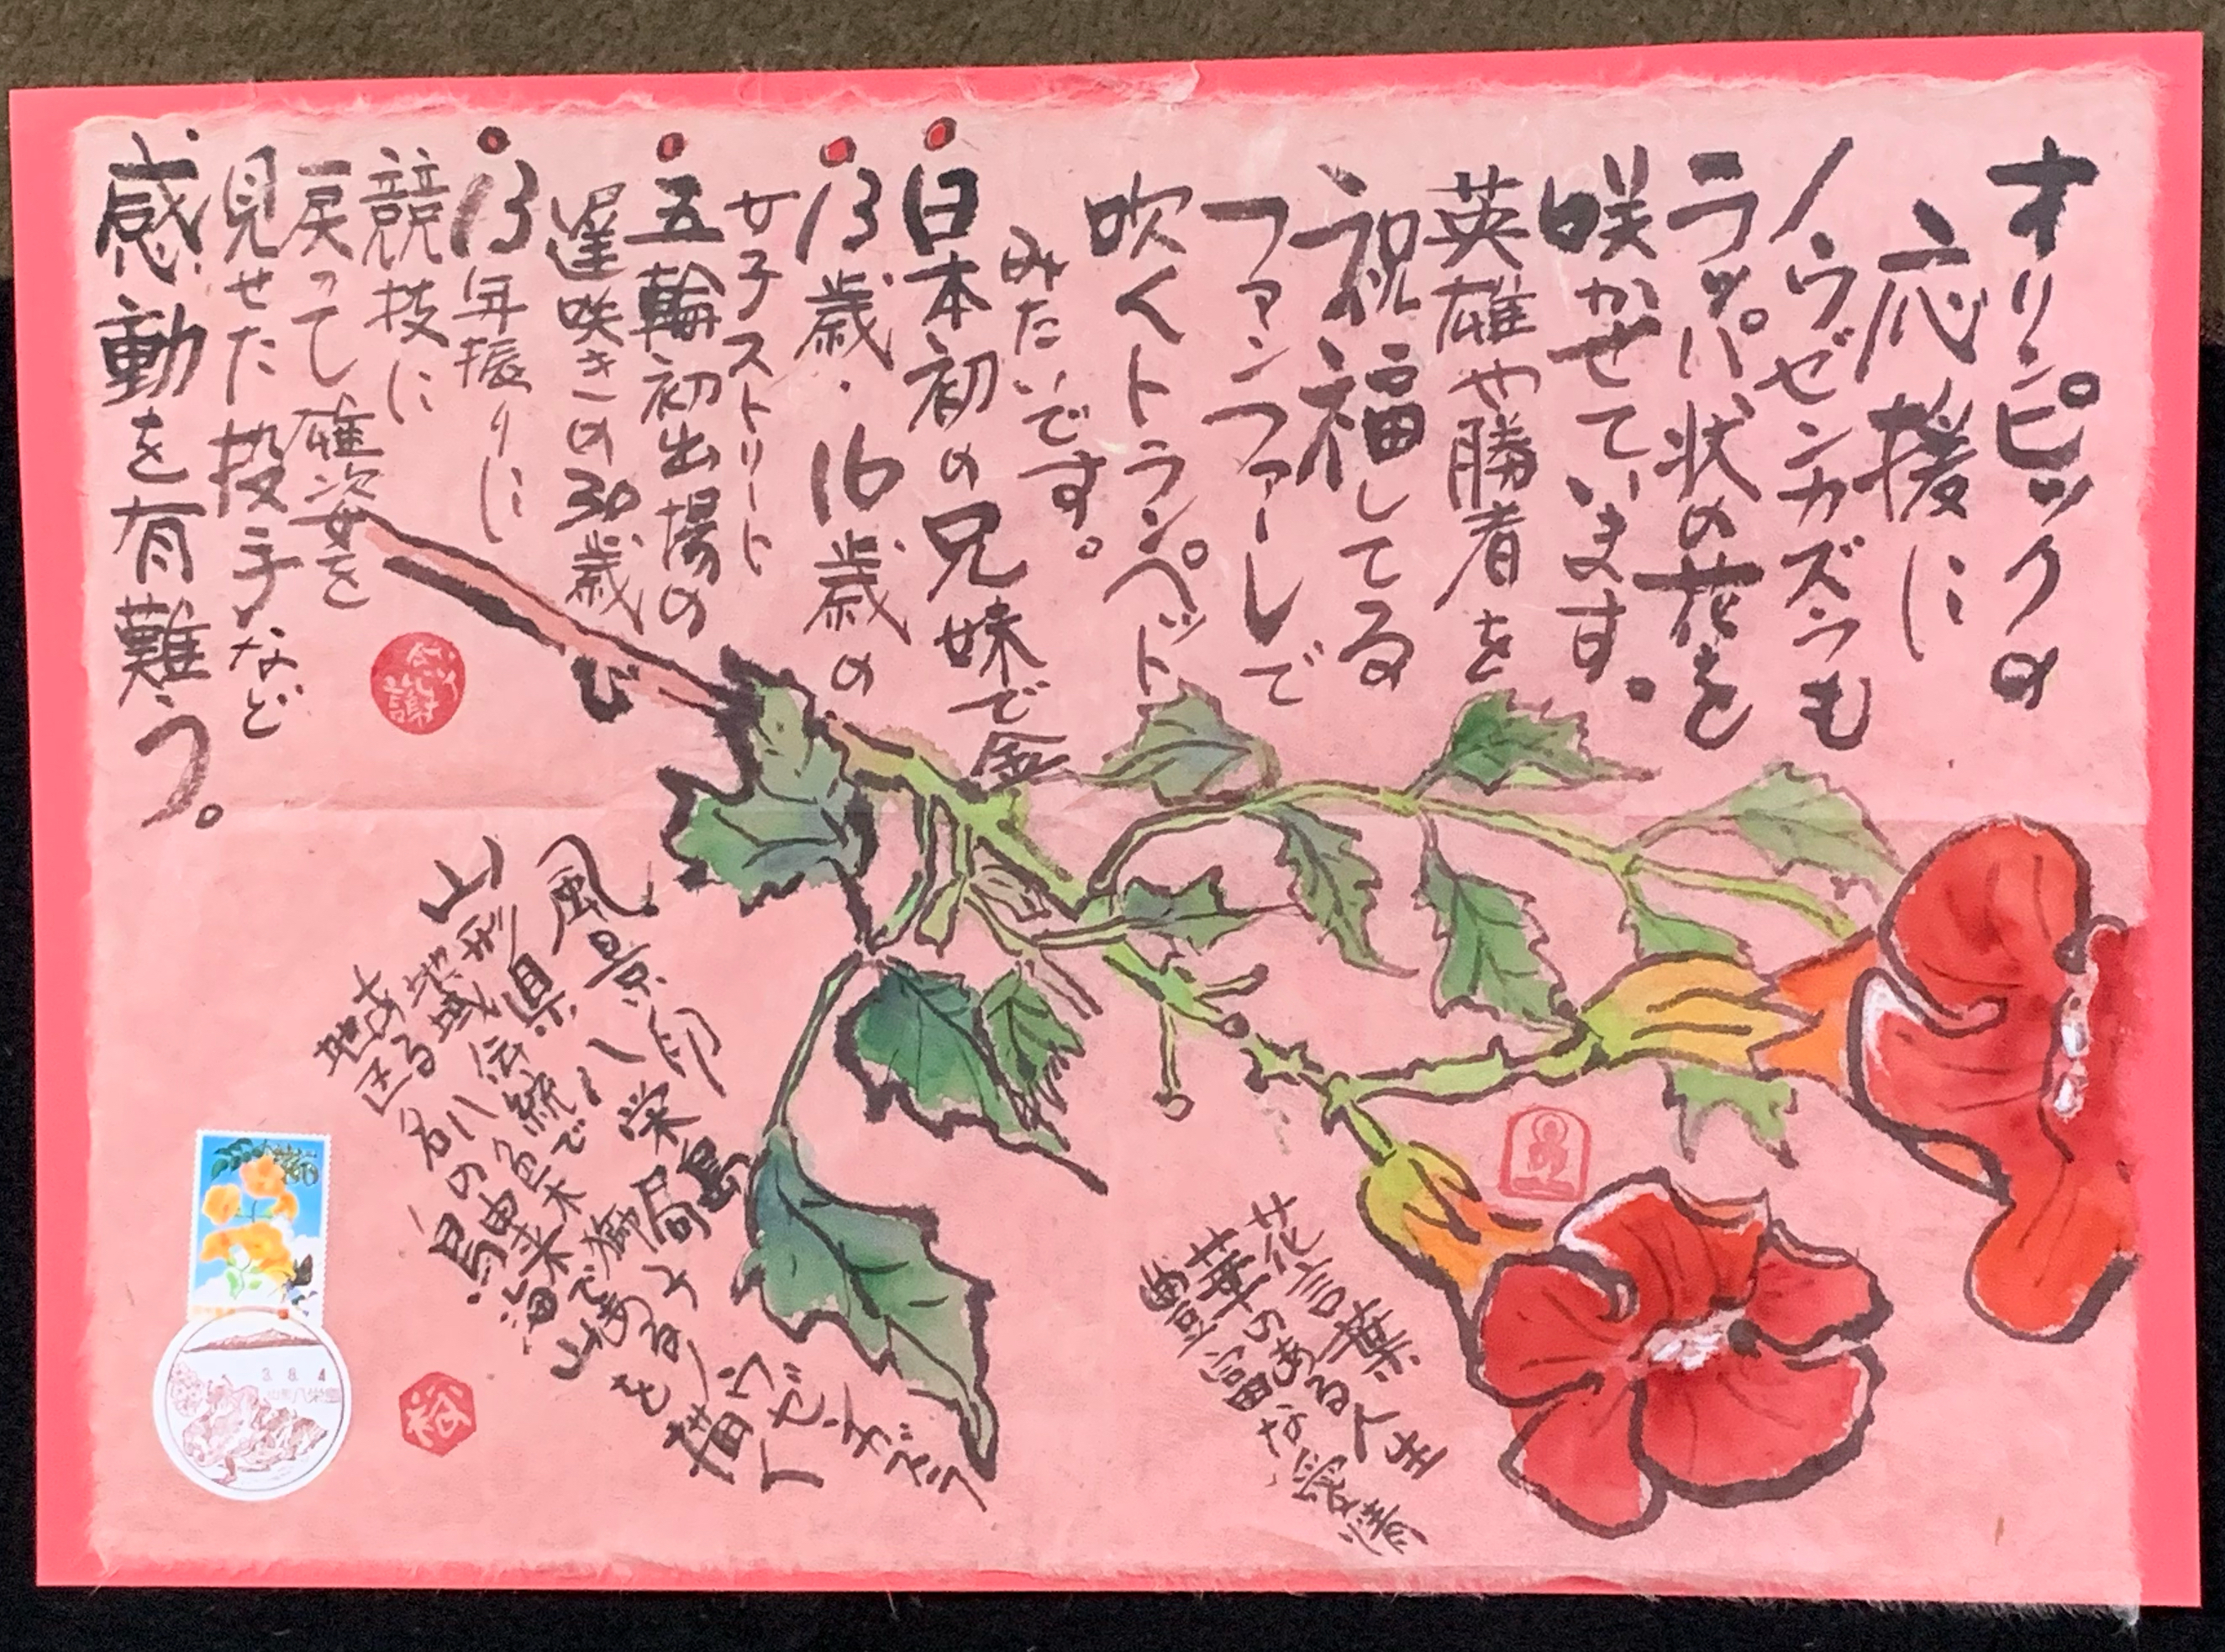 オリンピックの
応援に
ノウゼンカズラも
ラッパ状の花を
咲かせています。
英雄や勝者を
祝福してる
ファンファーレで
吹くトランペット
みたいです。
日本初の兄妹で金
13歳・16歳の
女子ストリート
五輪初出場の
遅咲きの30歳
13年振りに
競技に
戻って雄姿を
見せた投手など
感動を有難う。
感謝
花言葉
華のある人生
豊富な愛情
ノウゼンカズラ
風景印 八栄島局より
山形県 八
地域伝統で
ある
地区名
八の
鳥
由来
海山を描く
裕
3.8.4
山形八栄島